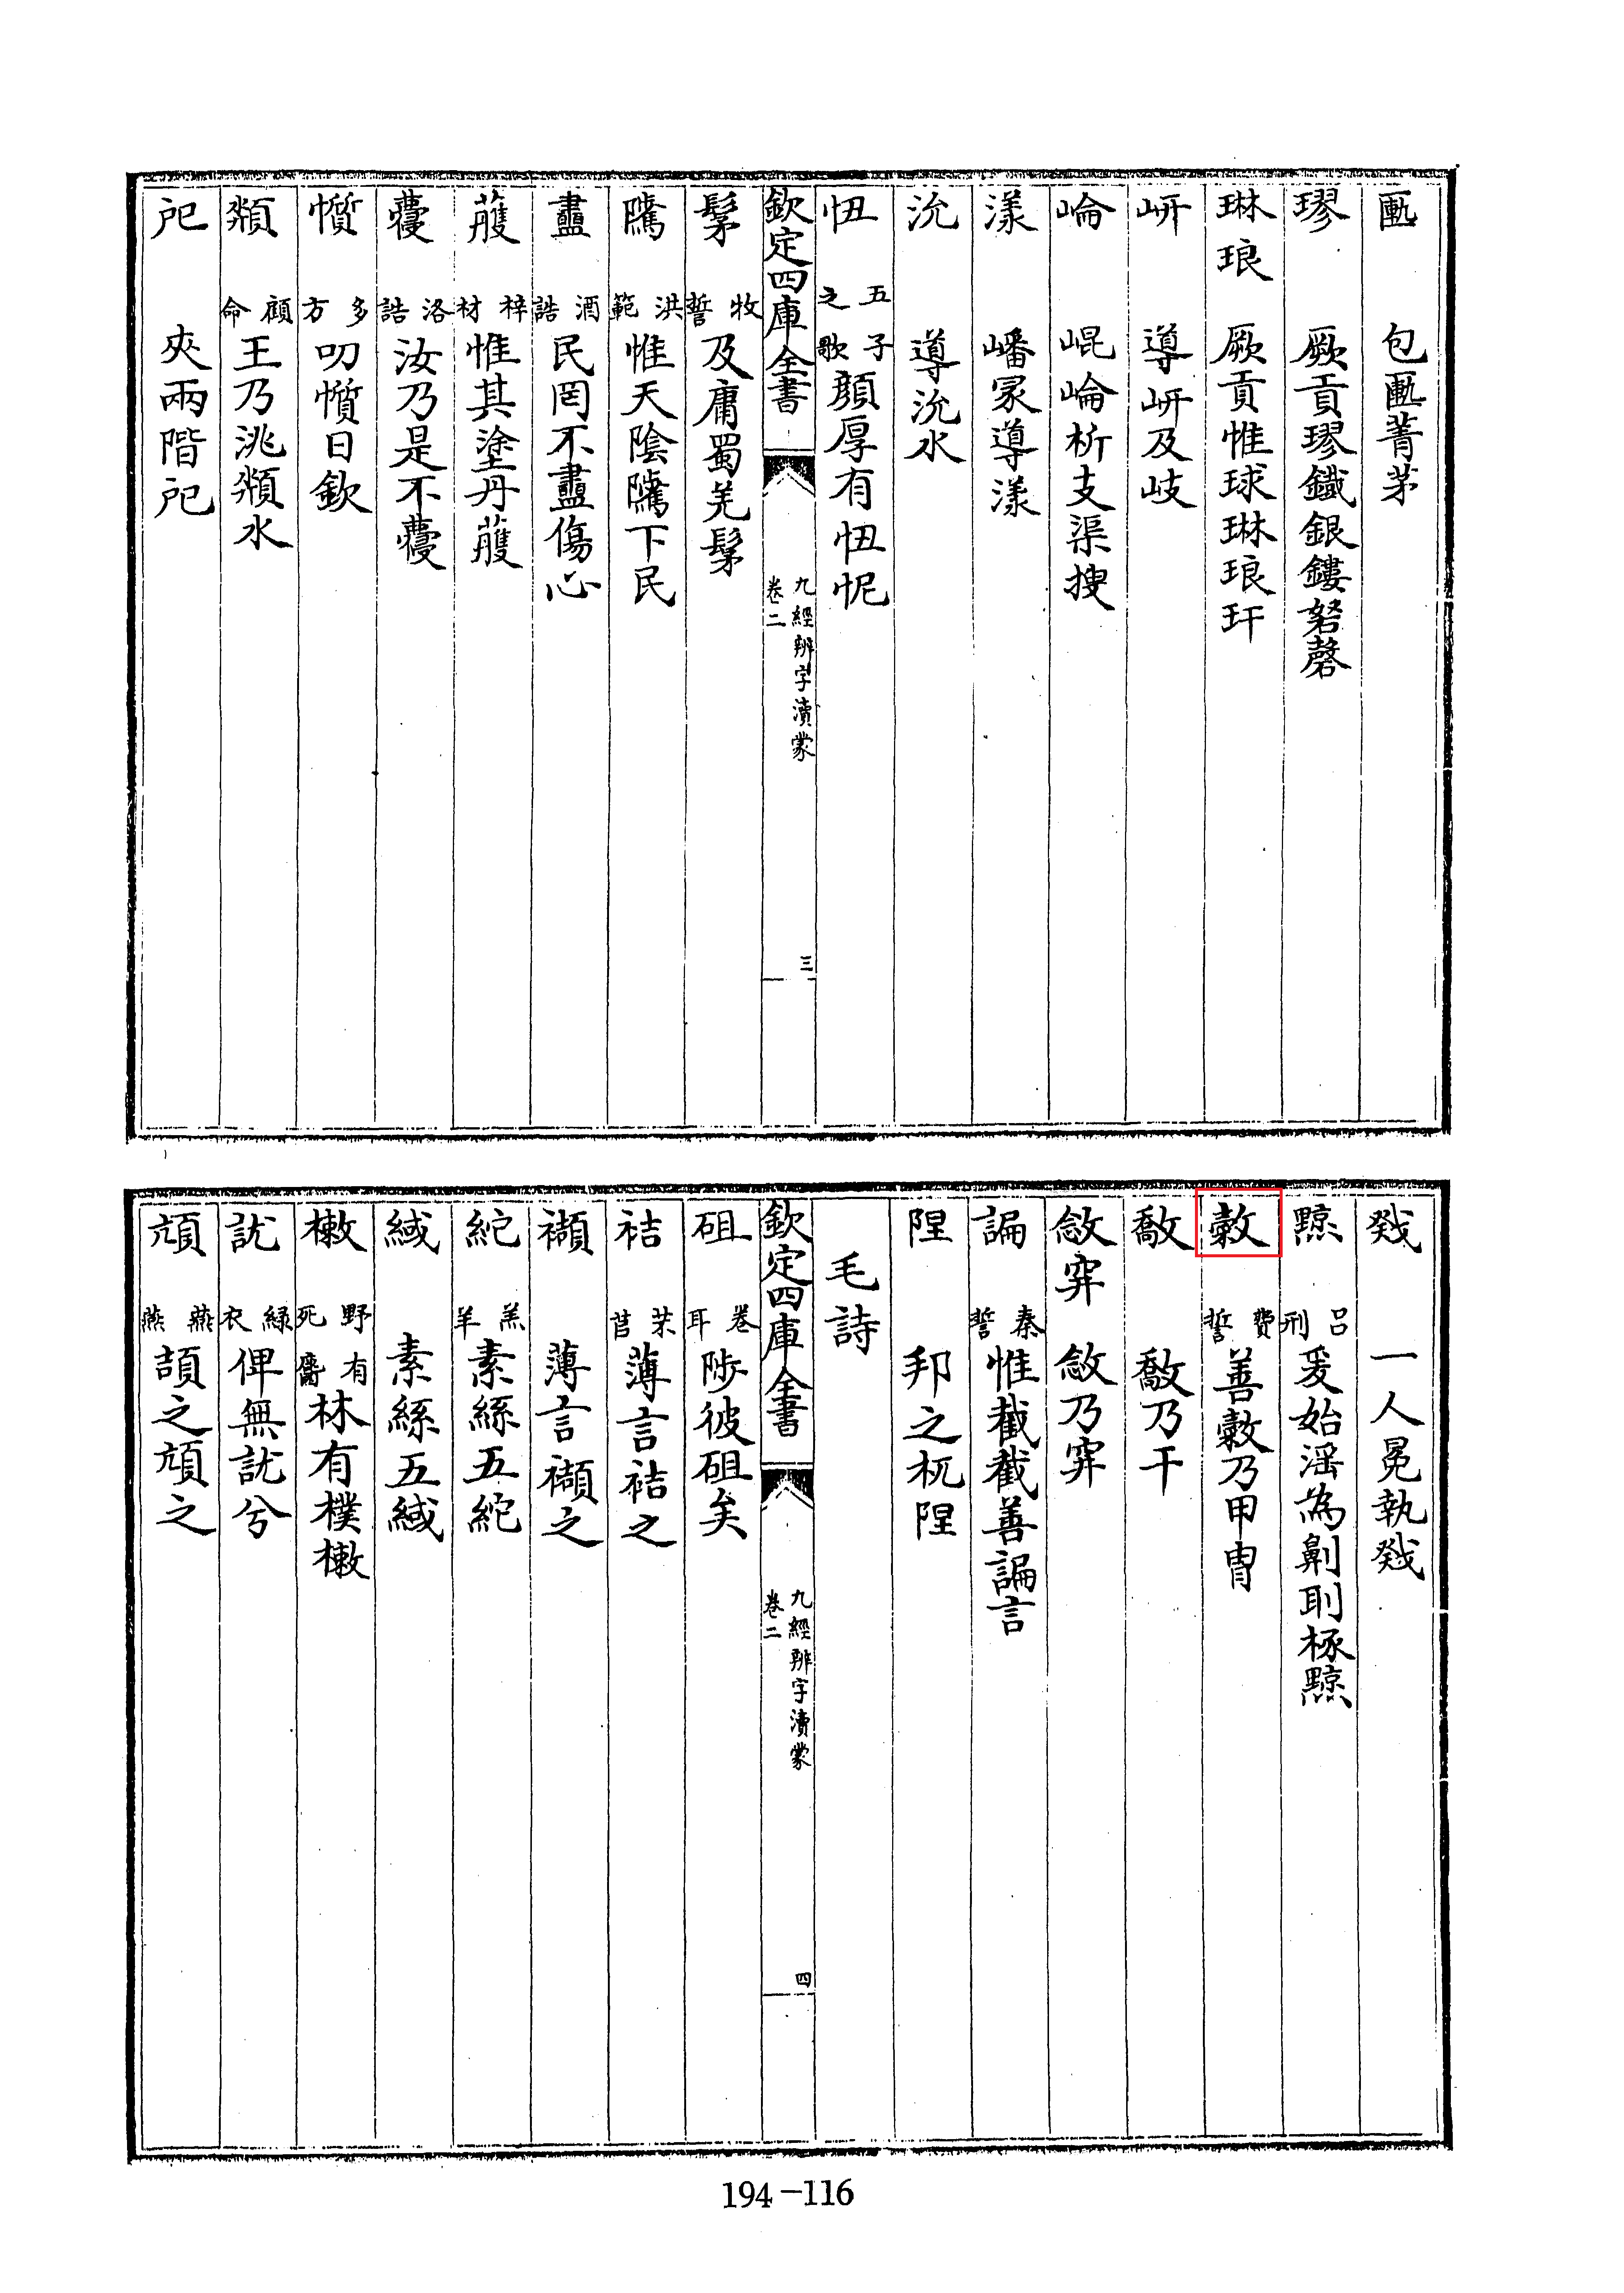 匭　包匭菁茅
璆　厥貢璆鐵銀鏤砮磬
琳琅　厥貢惟球琳琅玕
岍　導岍及岐
崘　崐崘析支渠搜
漾　嶓冢導漾
沇　導沇水
忸　五子之歌顔厚有忸怩
欽定四庫全書　九經辨字瀆蒙卷二　三
髳　牧誓及庸蜀羌髳
隲　洪範惟天陰隲下民
衋　酒誥民罔不衋傷心
雘　梓材惟其塗丹雘
蘉　洛誥汝乃是不蘉
懫　多方叨懫日欽
頮　顧命王乃洮頮水
戺　夾兩階戺
戣　一人冕執戣
黥　呂刑爰始淫為劓刵椓黥
敹　費誓善敹乃甲胄
敿　敿乃干
敜穽　敜乃穽
諞　秦誓惟截截善諞言
隉　邦之杌隉
毛詩
欽定四庫全書　九經辨字瀆蒙卷二　四
砠　卷耳陟彼砠矣
袺　芣苢薄言袺之
襭　薄言襭之
紽　羔羊素絲五紽
緎　素絲五緎
樕　野有死麕林有樸樕
訧　緑衣俾無訧兮
頏　燕燕頡之頏之
194-116